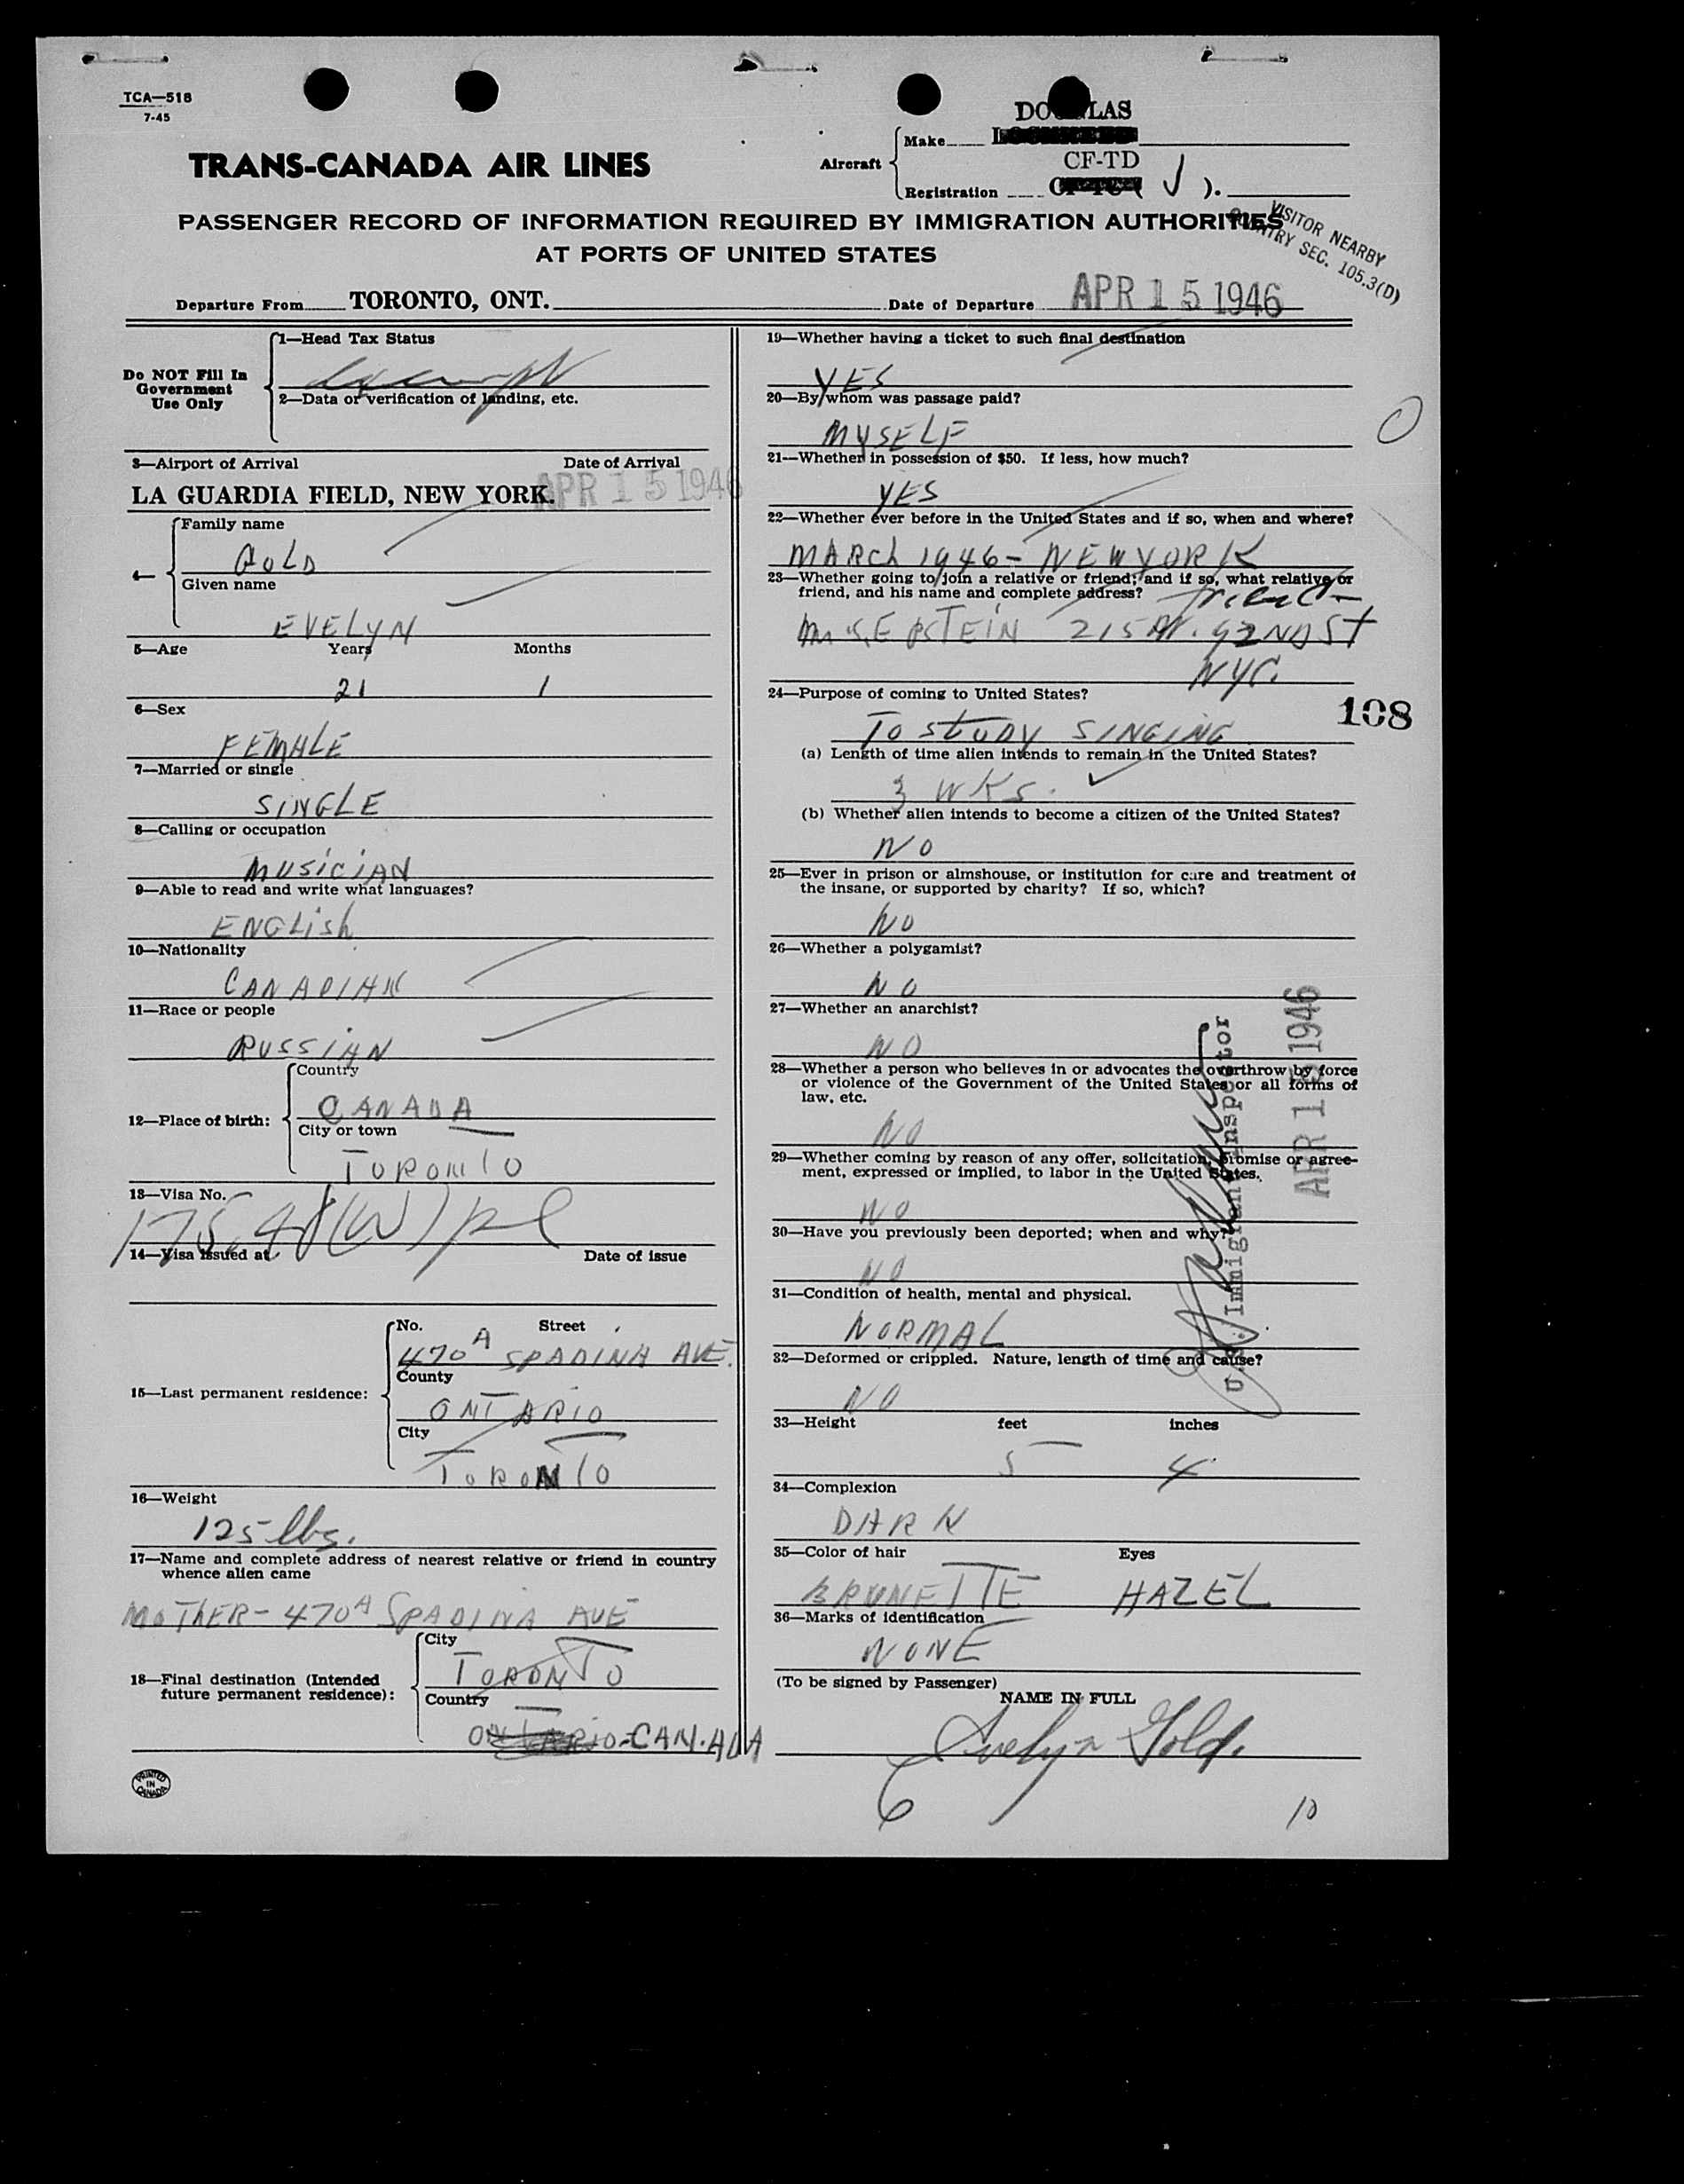 TCA—518
7-45
DOUGLAS
TRANS-CANADA AIR LINES
Aircraft
Make
CF-TD
Registration
J ).
PASSENGER RECORD OF INFORMATION REQUIRED BY IMMIGRATION AUTHORITIES
AT PORTS OF UNITED STATES
VISITOR NEARBY
COUNTRY SEC. 105.3(D)
Departure From TORONTO, ONT. Date of Departure APR 15 1946
Do NOT Fill In
Government
Use Only
1—Head Tax Status
Exempt
2—Data or verification of landing, etc.
3—Airport of Arrival Date of Arrival
LA GUARDIA FIELD, NEW YORK. APR 15 1946
4—
Family name
GOLD
Given name
EVELYN
5—Age Years Months
21 1
6—Sex
FEMALE
7—Married or single
SINGLE
8—Calling or occupation
MUSICIAN
9—Able to read and write what languages?
ENGLish
10—Nationality
CANADIAN
11—Race or people
RUSSIAN
12—Place of birth:
Country
CANADA
City or town
TORONTO
13—Visa No.
175.48(W)
14—Visa issued at Date of issue
15—Last permanent residence:
No. Street
470A SPADINA AVE.
County
ONTARIO
City
TORONTO
16—Weight
125 lbs.
17—Name and complete address of nearest relative or friend in country
whence alien came
MOTHER- 470A SPADINA AVE
18—Final destination (Intended
future permanent residence):
City
TORONTO
Country
ONTARIO-CANADA
PRINTED
IN
CANADA
19—Whether having a ticket to such final destination
YES
20—By whom was passage paid?
MYSELF
21—Whether in possession of $50. If less, how much?
YES
22—Whether ever before in the United States and if so, when and where?
MARCh 1946- NEW YORK
23—Whether going to join a relative or friend; and if so, what relative or
friend, and his name and complete address? friend-
EPSTEIN 215 W. 92ND ST
NYC.
24—Purpose of coming to United States?
108
To STUDY SINGING
(a) Length of time alien intends to remain in the United States?
3 WKS.
(b) Whether alien intends to become a citizen of the United States?
NO
25—Ever in prison or almshouse, or institution for care and treatment of
the insane, or supported by charity? If so, which?
NO
26—Whether a polygamist?
NO
27—Whether an anarchist?
NO
28—Whether a person who believes in or advocates the overthrow by force
or violence of the Government of the United States or all forms of
law, etc.
NO
29—Whether coming by reason of any offer, solicitation, promise or agree-
ment, expressed or implied, to labor in the United States.
NO
30—Have you previously been deported; when and why?
NO
31—Condition of health, mental and physical.
NORMAL
32—Deformed or crippled. Nature, length of time and cause?
NO
U.S. Immigrant Inspector
APR 15 1946
33—Height feet inches
5 4
34—Complexion
DARK
35—Color of hair Eyes
BRUNETTE HAZEL
36—Marks of identification
NONE
(To be signed by Passenger)
NAME IN FULL
Evelyn Gold.
6
10